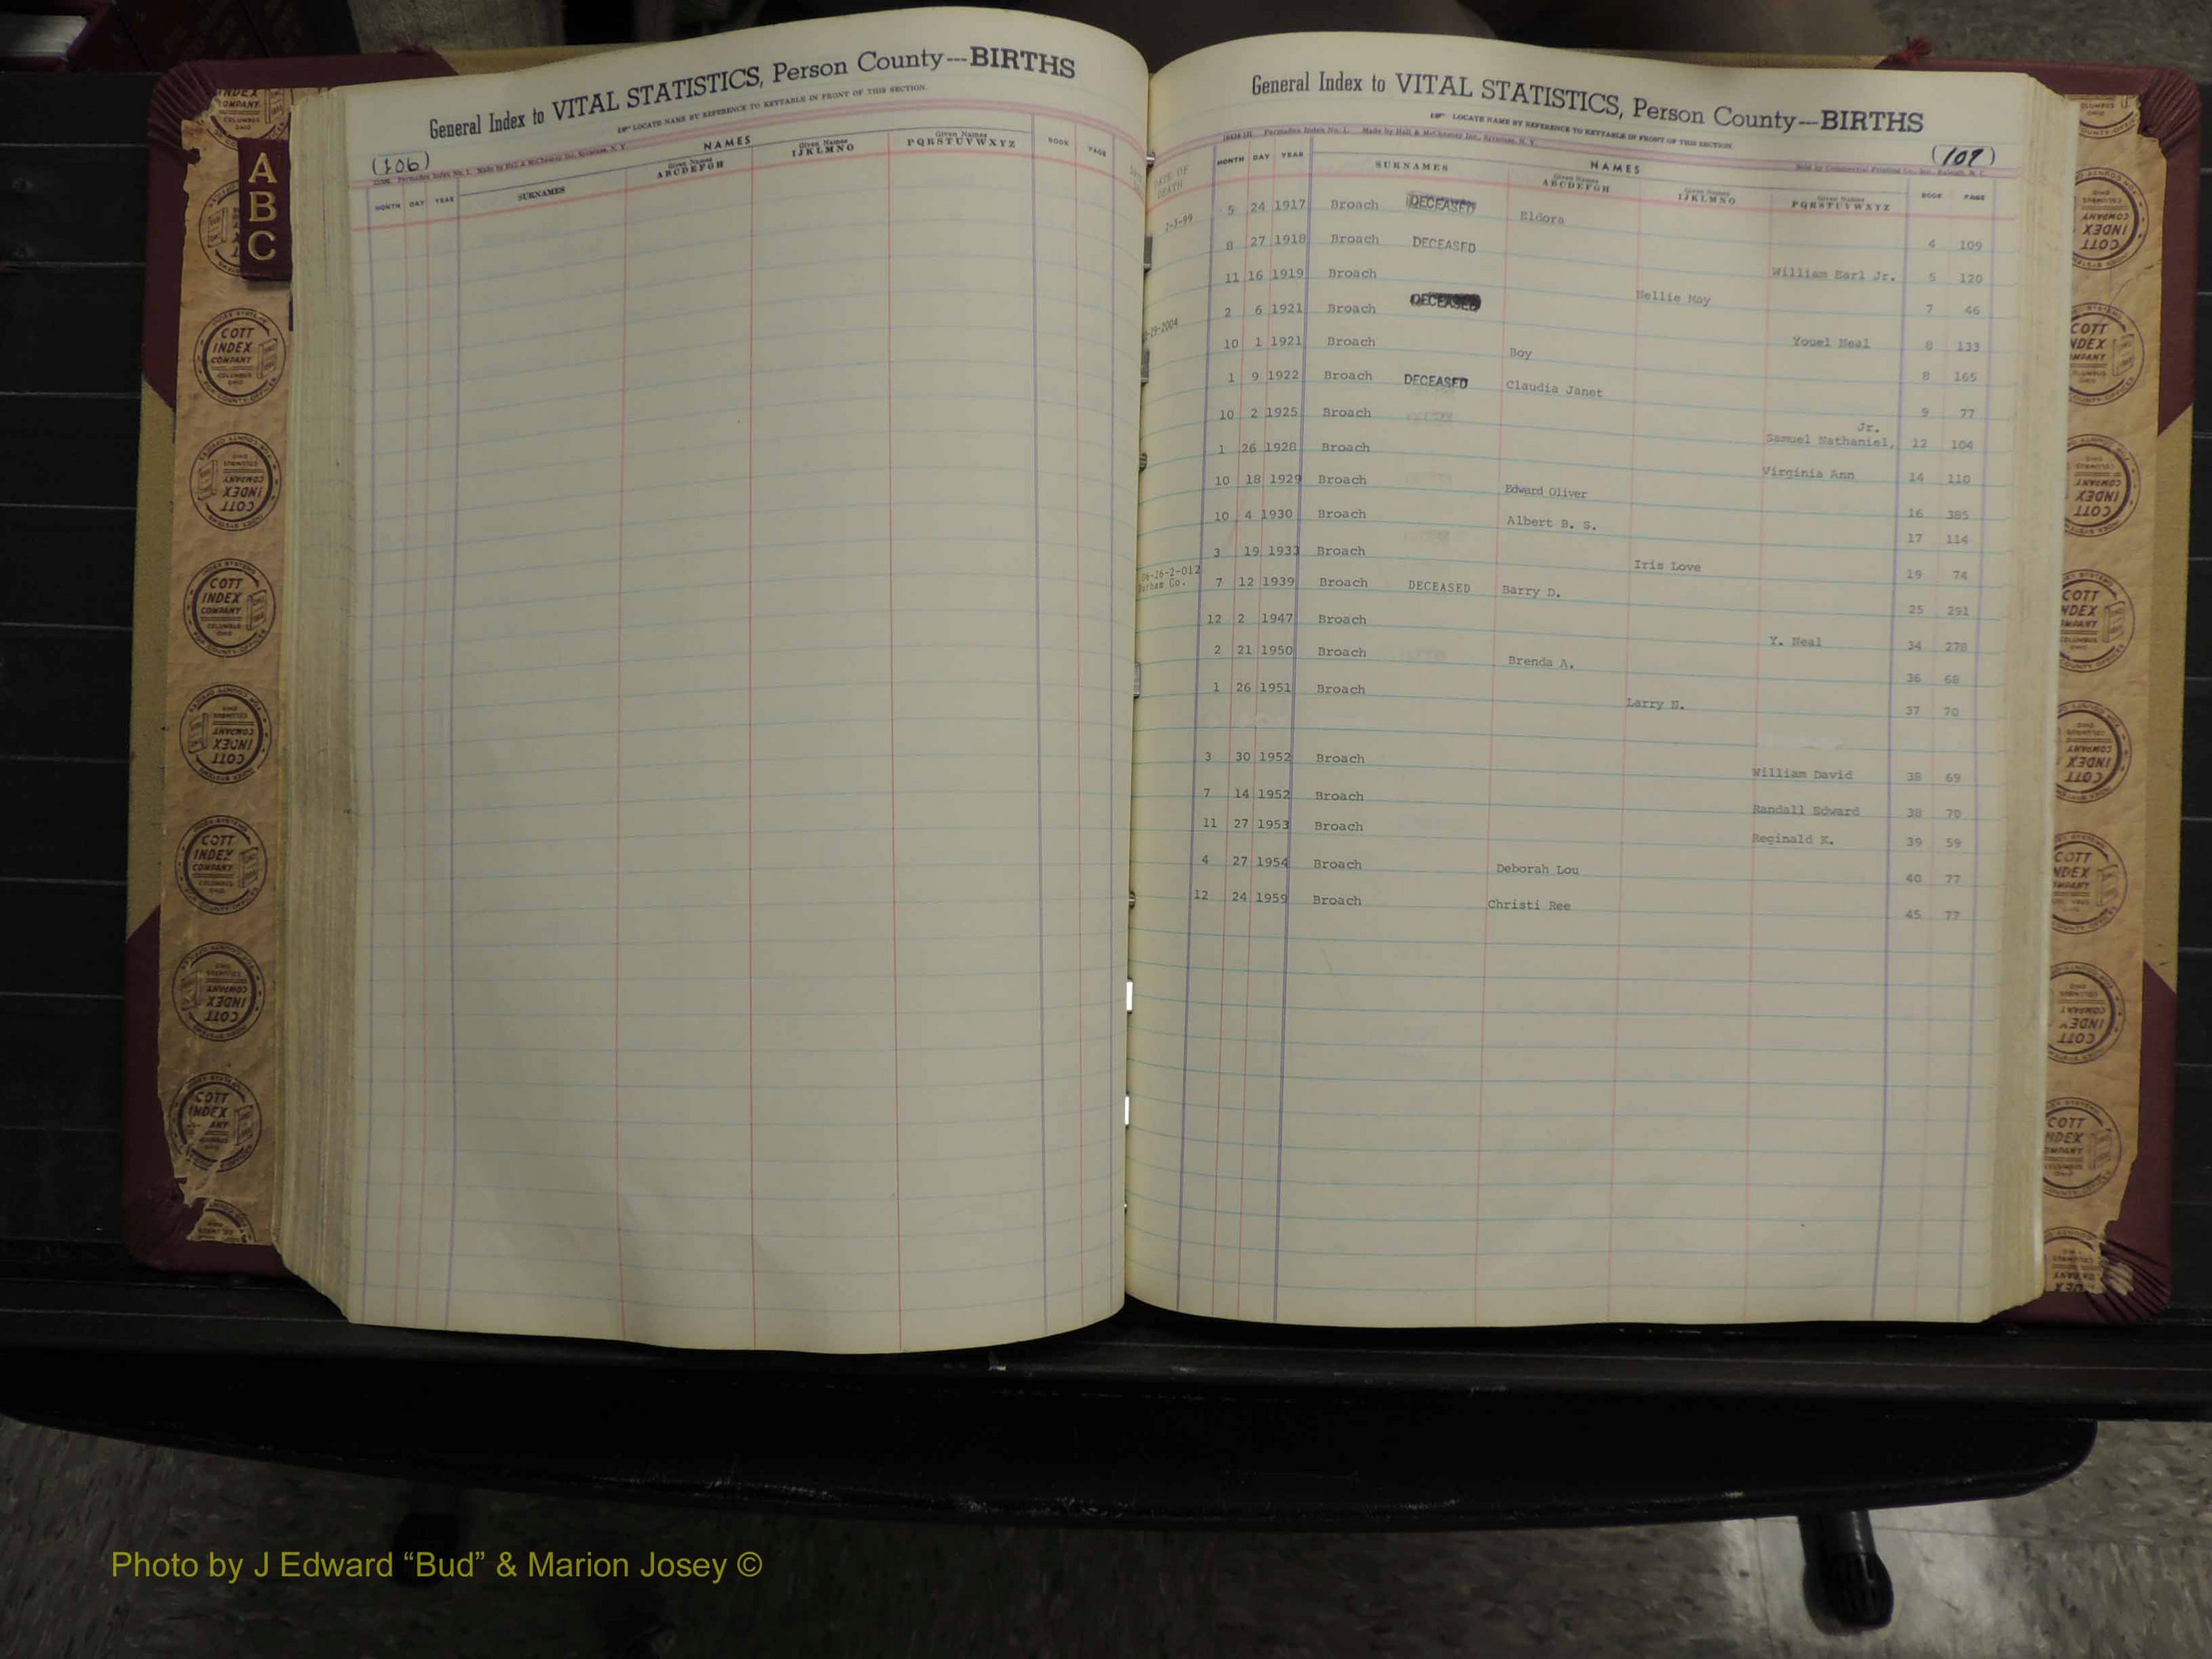 General Index to VITAL STATISTICS, Person County---BIRTHS
LOCATE NAME BY REFERENCE TO KEYTABLE IN FRONT OF THIS SECTION.
(106)
NAMES
MONTH DAY YEAR SURNAMES Given Names ABCDEFGH Given Names IJKLMNO Given Names PQRSTUVWXYZ BOOK PAGE
A
B
C
COTT
INDEX
COMPANY
COLUMBUS
OHIO
General Index to VITAL STATISTICS, Person County---BIRTHS
LOCATE NAME BY REFERENCE TO KEYTABLE IN FRONT OF THIS SECTION.
(107)
NAMES
DATE OF DEATH MONTH DAY YEAR SURNAMES Given Names ABCDEFGH Given Names IJKLMNO Given Names PQRSTUVWXYZ BOOK PAGE
5 24 1917 Broach DECEASED Eldora 4 109
8 27 1918 Broach DECEASED William Earl Jr. 5 120
11 16 1919 Broach Nellie May 7 46
2 6 1921 Broach DECEASED Youel Neal 8 133
10 1 1921 Broach Boy 8 165
1 9 1922 Broach DECEASED Claudia Janet 9 77
10 2 1925 Broach Samuel Nathaniel, Jr. 12 104
1 26 1928 Broach Virginia Ann 14 110
10 18 1929 Broach Edward Oliver 16 385
10 4 1930 Broach Albert B. S. 17 114
3 19 1933 Broach Iris Love 19 74
06-26-2-012 Durham Co. 7 12 1939 Broach DECEASED Barry D. 25 291
12 2 1947 Broach Y. Neal 34 278
2 21 1950 Broach Brenda A. 36 68
1 26 1951 Broach Larry N. 37 70
3 30 1952 Broach William David 38 69
7 14 1952 Broach Randall Edward 38 70
11 27 1953 Broach Reginald K. 39 59
4 27 1954 Broach Deborah Lou 40 77
12 24 1959 Broach Christi Ree 45 77
Photo by J Edward “Bud” & Marion Josey ©